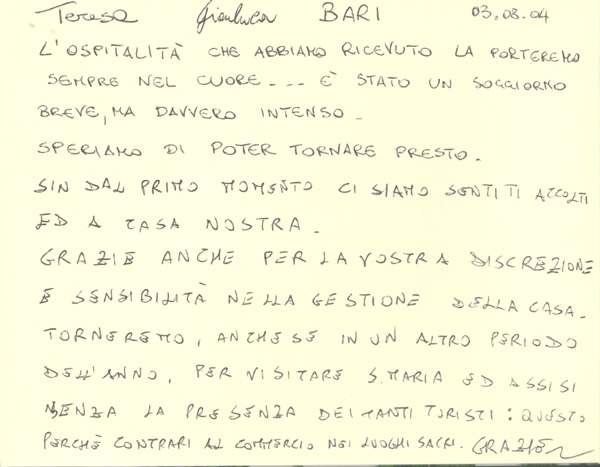 Teresa Gianluca BARI 03.08.04
L'OSPITALITÀ CHE ABBIAMO RICEVUTO LA PORTEREMO
SEMPRE NEL CUORE... È STATO UN SOGGIORNO
BREVE, MA DAVVERO INTENSO.
SPERIAMO DI POTER TORNARE PRESTO.
SIN DAL PRIMO MOMENTO CI SIAMO SENTITI ACCOLTI
ED A CASA NOSTRA.
GRAZIE ANCHE PER LA VOSTRA DISCREZIONE
E SENSIBILITÀ NELLA GESTIONE DELLA CASA.
TORNEREMO, ANCHE SE IN UN ALTRO PERIODO
DELL'ANNO, PER VISITARE S.MARIA ED ASSISI
SENZA LA PRESENZA DEI TANTI TURISTI: QUESTO
PERCHÈ CONTRARI AL COMMERCIO NEI LUOGHI SACRI. GRAZIE